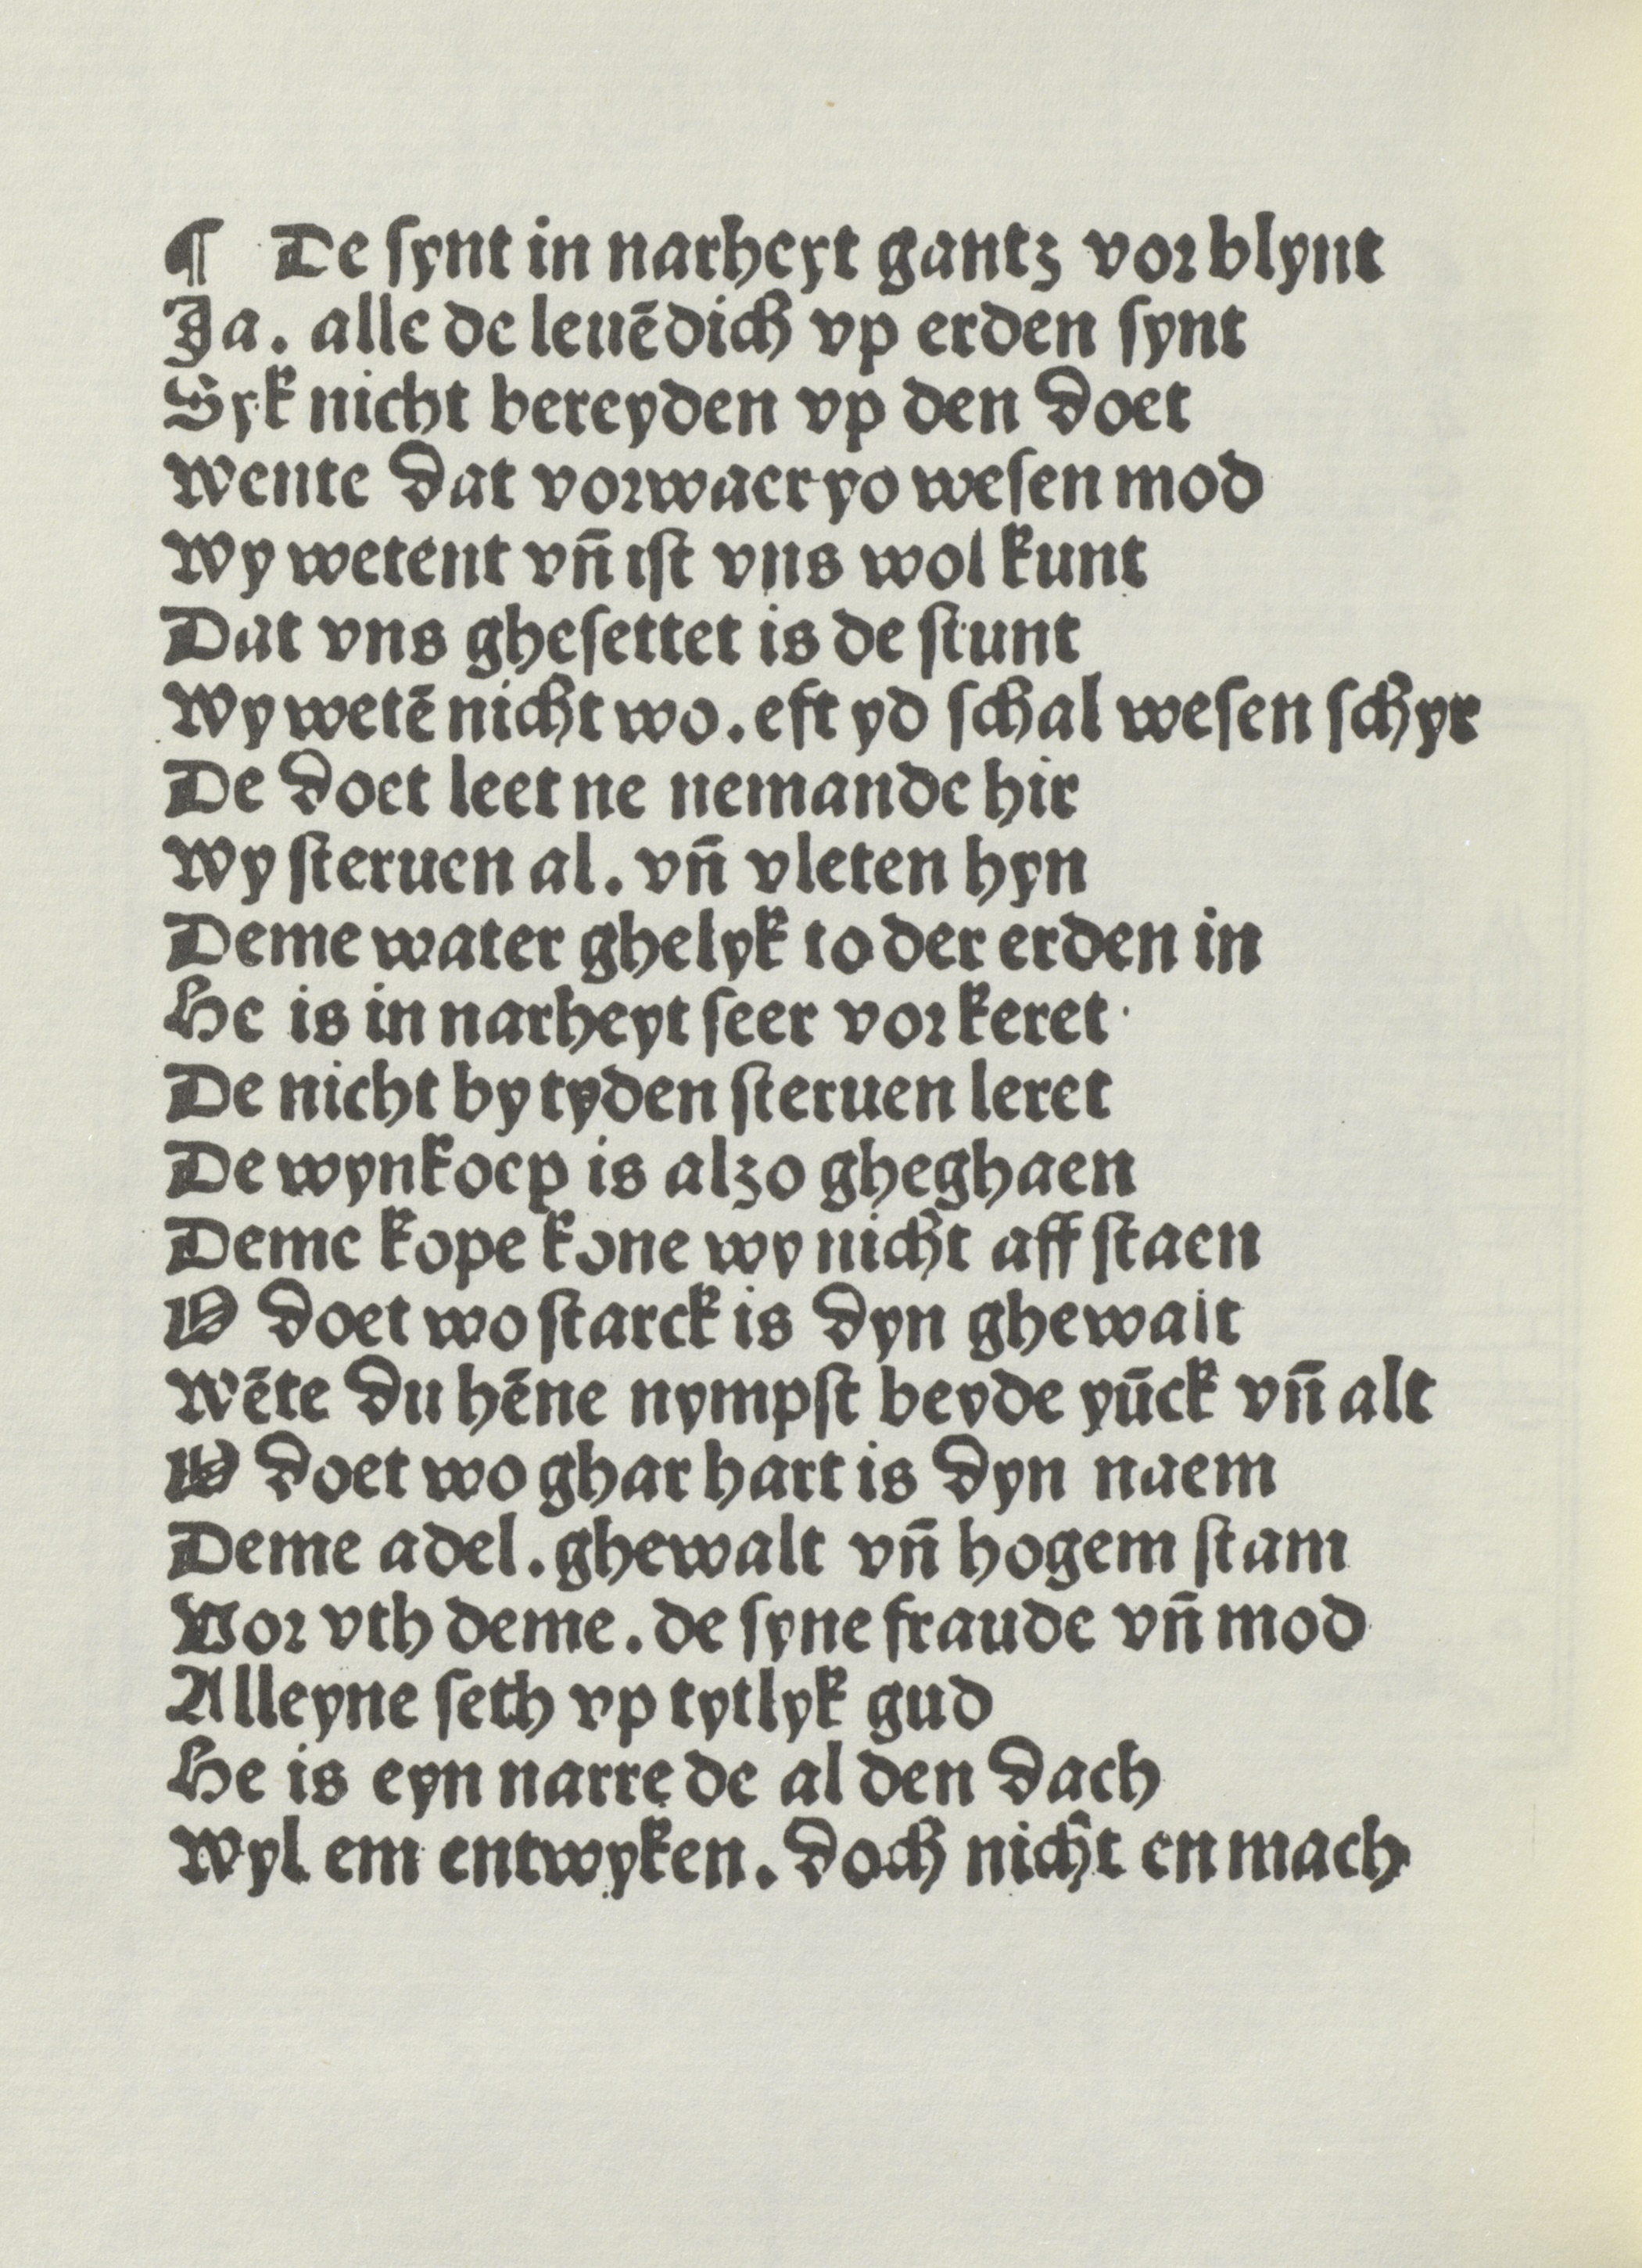 ¶ De ſynt in narheyt gantz vor blynt
Ja. alle de leuēdich vp erden ſynt
Syk nicht bereyden vp den doet
Wente dat vorwaer yo weſen mod
Wy wetent vn̄ iſt vns wol kunt
Dat vns gheſettet is de ſtunt
Wy wetē nicht wo. eft yd ſchal weſen ſchyr
De doet leet ne nemande hir
Wy ſteruen al. vn̄ vleten hyn
Deme water ghelyk to der erden in
He is in narheyt ſeer vor keret
De nicht by tyden ſteruen leret
De wynkoep is alzo gheghaen
Deme kope kone wy nicht aff ſtaen
O doet wo ſtarck is dyn ghewalt
Wēte du hēne nympſt beyde yūck vn̄ alt
O doet wo ghar hart is dyn naem
Deme adel. ghewalt vn̄ hogem ſtam
Vor vth deme. de ſyne fraude vn̄ mod
Alleyne ſeth vp tytlyk gud
He is eyn narre de al den dach
Wyl em entwyken. doch nicht en mach